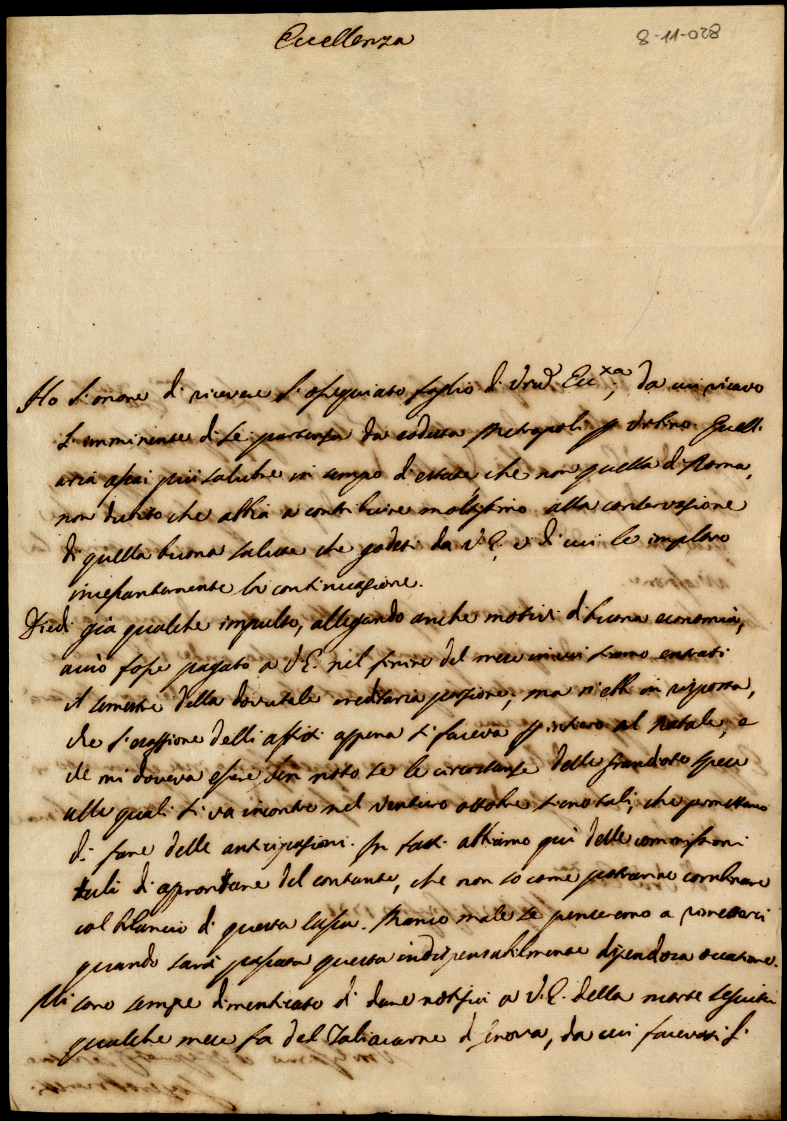 Eccellenza
8-11-028
Ho l'onore di ricevere l'ossequiato foglio di Vrã Eccxa, da cui ricavo
l'imminente di Lei partenza da codesta Metropoli p Urbino. Quell'
aria assai più salubre in tempo d'estate che non quella di Roma,
non dubito che abbia a contribuire moltissimo alla conservazione
di quella buona salute che godesi da V.E. e di cui le imploro
incessantemente la continuazione.
Diedi già qualche impulso, allegando anche motivi di buona economia,
acciò fosse pagato a V.E. nel finire del mese in cui siamo entrati
il semestre della dovutale ereditaria pensione, ma n'ebbi in risposta,
che l'esazione delli affitti appena si faceva p intiero al Natale, e
che mi doveva essere ben noto se le circostanze delle grandiose spese
alle quali si va incontro nel venturo ottobre sieno tali, che permettano
di fare delle anticipazioni. In fatti abbiamo quì delle commissioni
tali di approntare del contante, che non so come potranno combinare
col bilancio di questa Cassa. Manco male se penseremo a rimetterci
quando sarà passata questa indispensabilmente dispendiosa occasione.
Mi sono sempre dimenticato di dare notizia a V.E. della morte seguita
qualche mese fa del Taliacarne di Genova, da cui facevasi l'